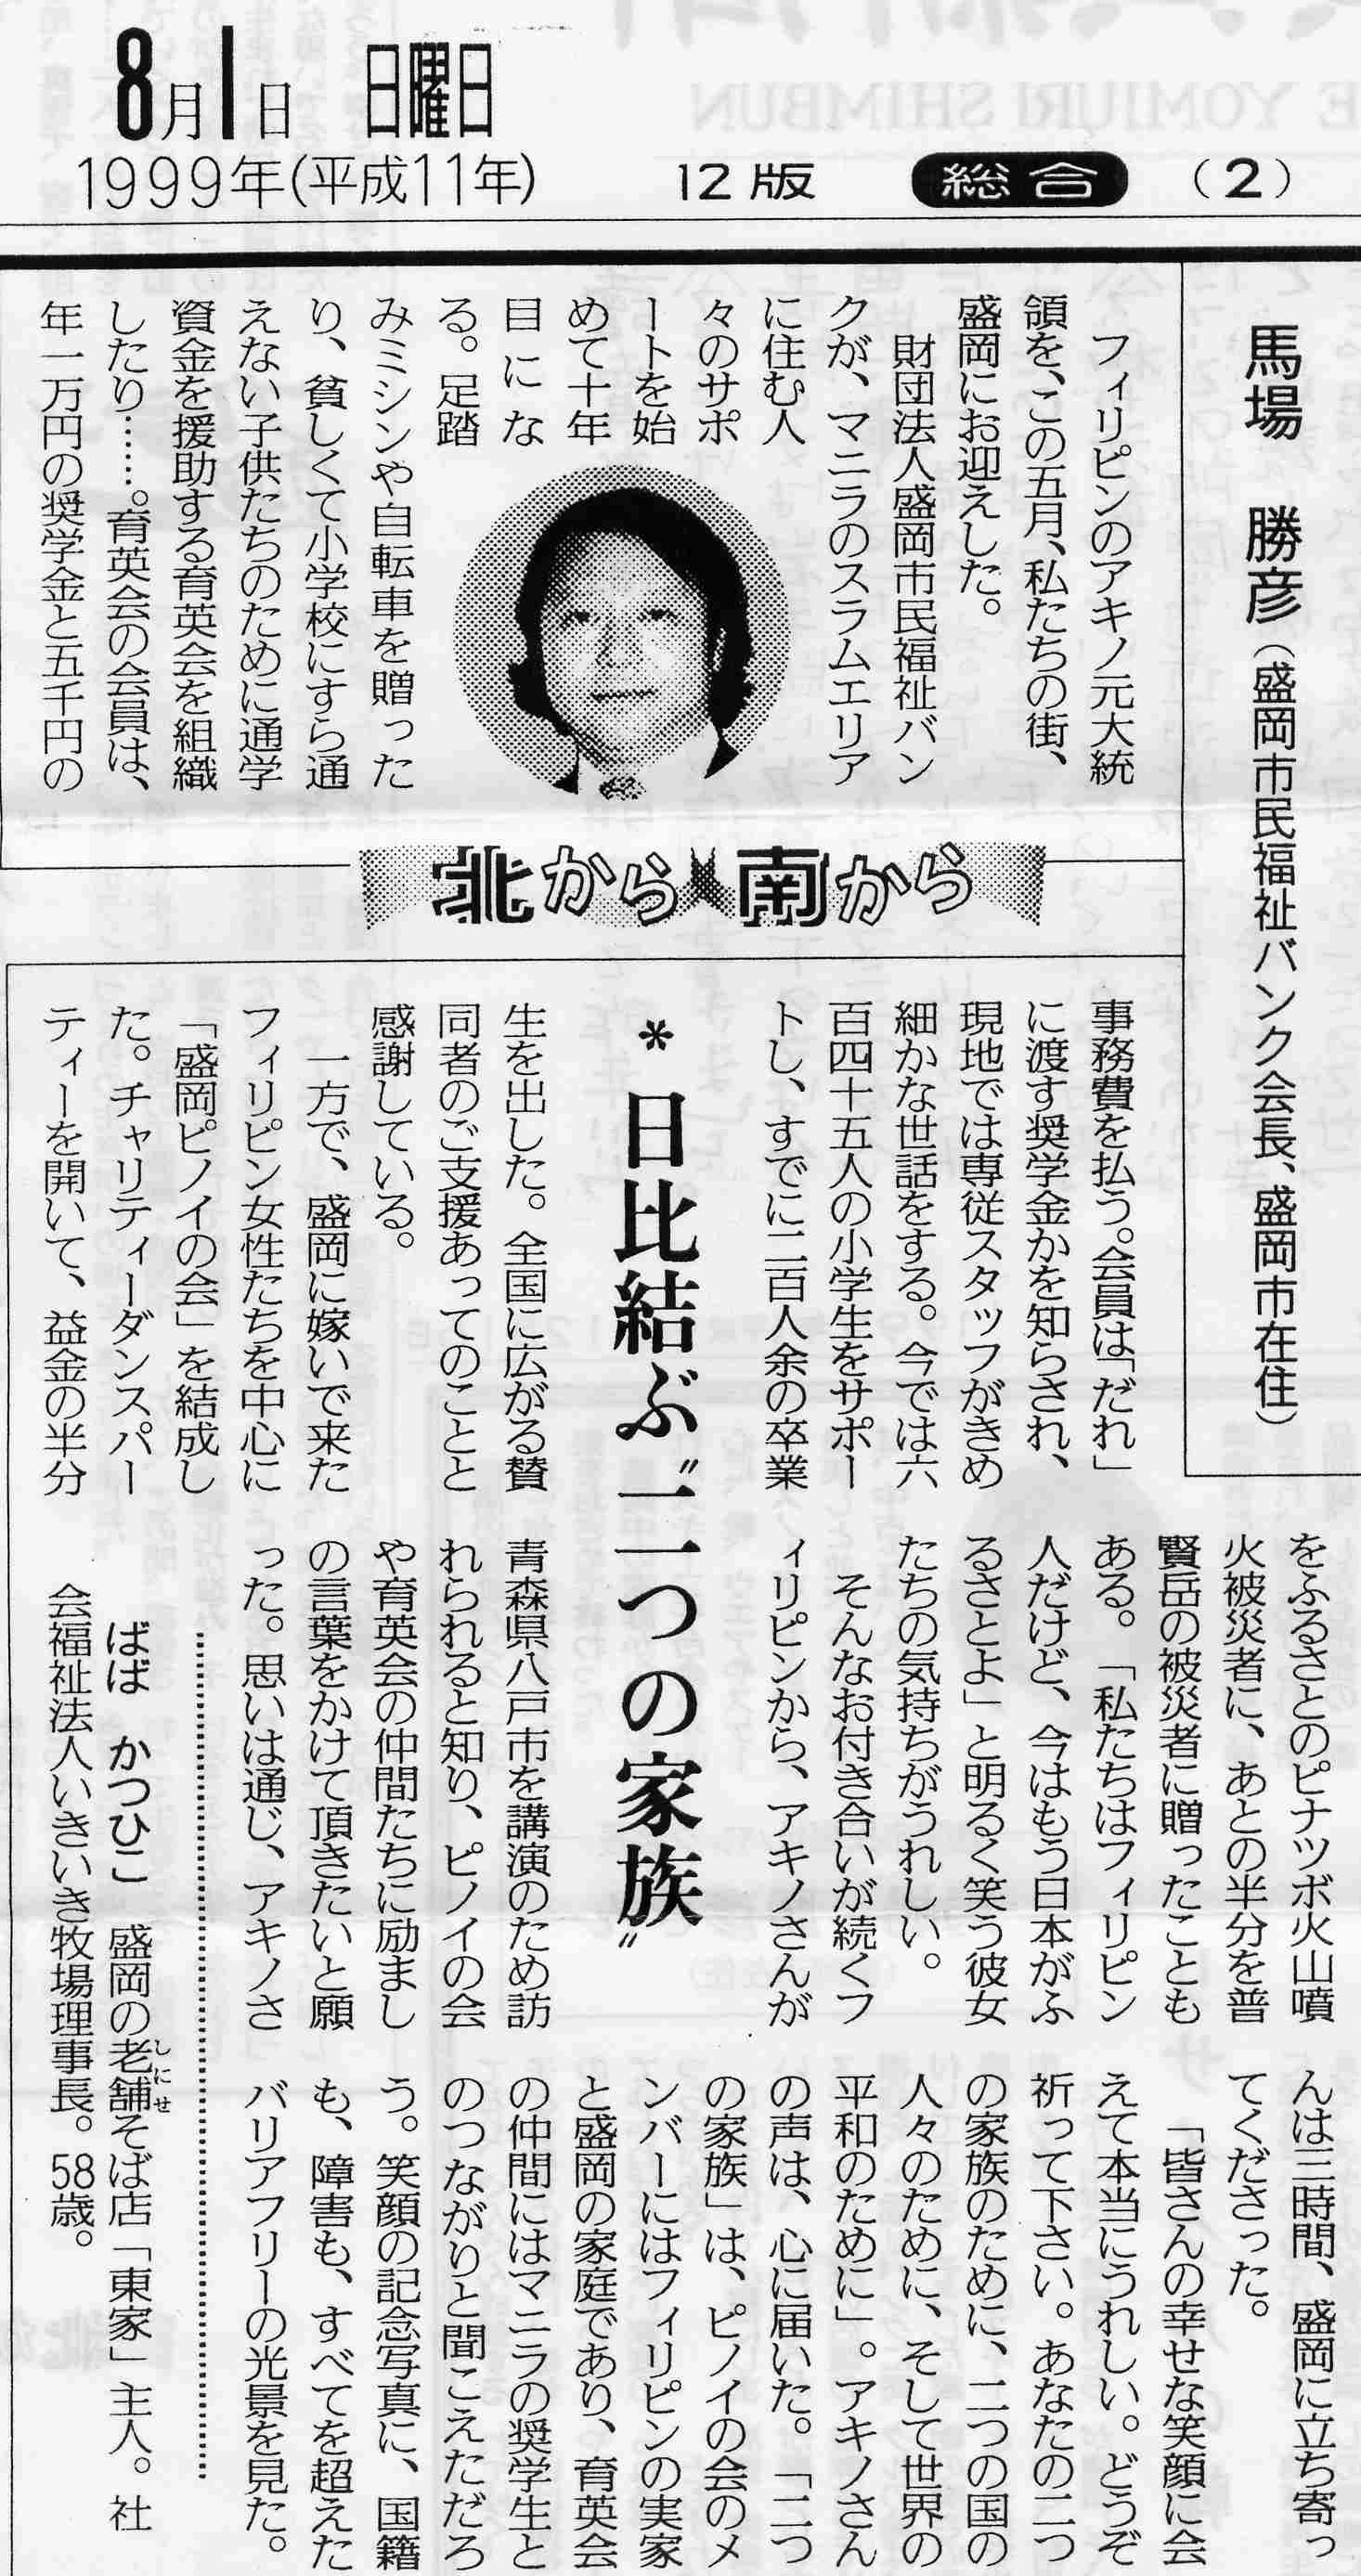 8月1日 日曜日
1999年(平成11年) 12版 総合 (2)
馬場 勝彦(盛岡市民福祉バンク会長、盛岡市在住)
フィリピンのアキノ元大統
領を、この五月、私たちの街、
盛岡にお迎えした。
財団法人盛岡市民福祉バン
クが、マニラのスラムエリア
に住む人
々のサポ
ートを始
めて十年
目にな
る。足踏
みミシンや自転車を贈った
り、貧しくて小学校にすら通
えない子供たちのために通学
資金を援助する育英会を組織
したり……。育英会の会員は、
年一万円の奨学金と五千円の
北から南から
事務費を払う。会員は「だれ」
に渡す奨学金かを知らされ、
現地では専従スタッフがきめ
細かな世話をする。今では六
百四十五人の小学生をサポー
トし、すでに二百人余の卒業
*日比結ぶ〝二つの家族〟
生を出した。全国に広がる賛
同者のご支援あってのことと
感謝している。
一方で、盛岡に嫁いで来た
フィリピン女性たちを中心に
「盛岡ピノイの会」を結成し
た。チャリティーダンスパー
ティーを開いて、益金の半分
をふるさとのピナツボ火山噴
火被災者に、あとの半分を普
賢岳の被災者に贈ったことも
ある。「私たちはフィリピン
人だけど、今はもう日本がふ
るさとよ」と明るく笑う彼女
たちの気持ちがうれしい。
そんなお付き合いが続くフ
ィリピンから、アキノさんが
青森県八戸市を講演のため訪
れられると知り、ピノイの会
や育英会の仲間たちに励まし
の言葉をかけて頂きたいと願
った。思いは通じ、アキノさ
んは三時間、盛岡に立ち寄っ
てくださった。
「皆さんの幸せな笑顔に会
えて本当にうれしい。どうぞ
祈って下さい。あなたの二つ
の家族のために、二つの国の
人々のために、そして世界の
平和のために」。アキノさん
の声は、心に届いた。「二つ
の家族」は、ピノイの会のメ
ンバーにはフィリピンの実家
と盛岡の家庭であり、育英会
の仲間にはマニラの奨学生と
のつながりと聞こえただろ
う。笑顔の記念写真に、国籍
も、障害も、すべてを超えた
バリアフリーの光景を見た。
ばば かつひこ 盛岡の老舗しにせそば店「東家」主人。社
会福祉法人いきいき牧場理事長。58歳。